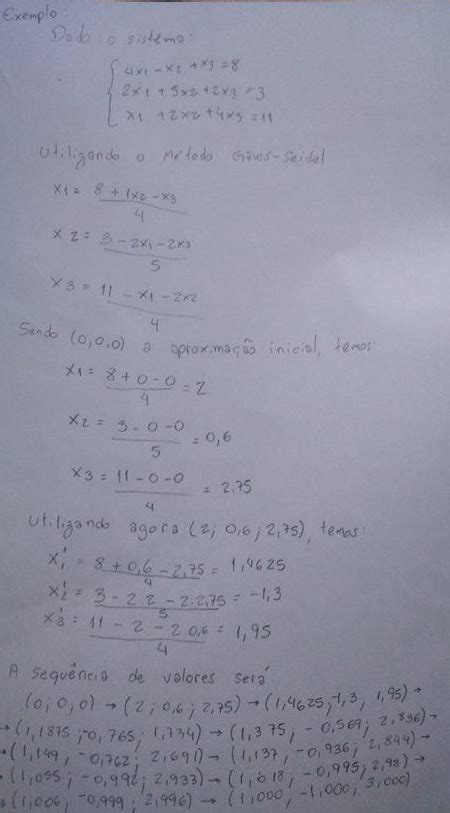 Exemplo:
Dado o sistema:
4x1 - x2 + x3 = 8
2x1 + 5x2 + 2x3 = 3
x1 + 2x2 + 4x3 = 11
Utilizando o Método Gauss-Seidel
x1 = 8 + 1x2 - x3 / 4
x2 = 3 - 2x1 - 2x3 / 5
x3 = 11 - x1 - 2x2 / 4
Sendo (0,0,0) a aproximação inicial, temos:
x1 = 8 + 0 - 0 / 4 = 2
x2 = 3 - 0 - 0 / 5 = 0,6
x3 = 11 - 0 - 0 / 4 = 2,75
Utilizando agora (2; 0,6; 2,75), temos:
x1' = 8 + 0,6 - 2,75 / 4 = 1,4625
x2' = 3 - 2 2 - 2.2,75 / 5 = -1,3
x3' = 11 - 2 - 2.0,6 / 4 = 1,95
A sequência de valores será
(0; 0; 0) → (2; 0,6; 2,75) → (1,4625; -1,3; 1,95) →
→ (1,1875; -0,765; 1,734) → (1,375; -0,569; 2,836) →
→ (1,149; -0,762; 2,691) → (1,137; -0,936; 2,844) →
(1,055; -0,992; 2,933) → (1,018; -0,995; 2,98) →
→ (1,006; -0,999; 2,996) → (1,000; -1,000; 3,000)